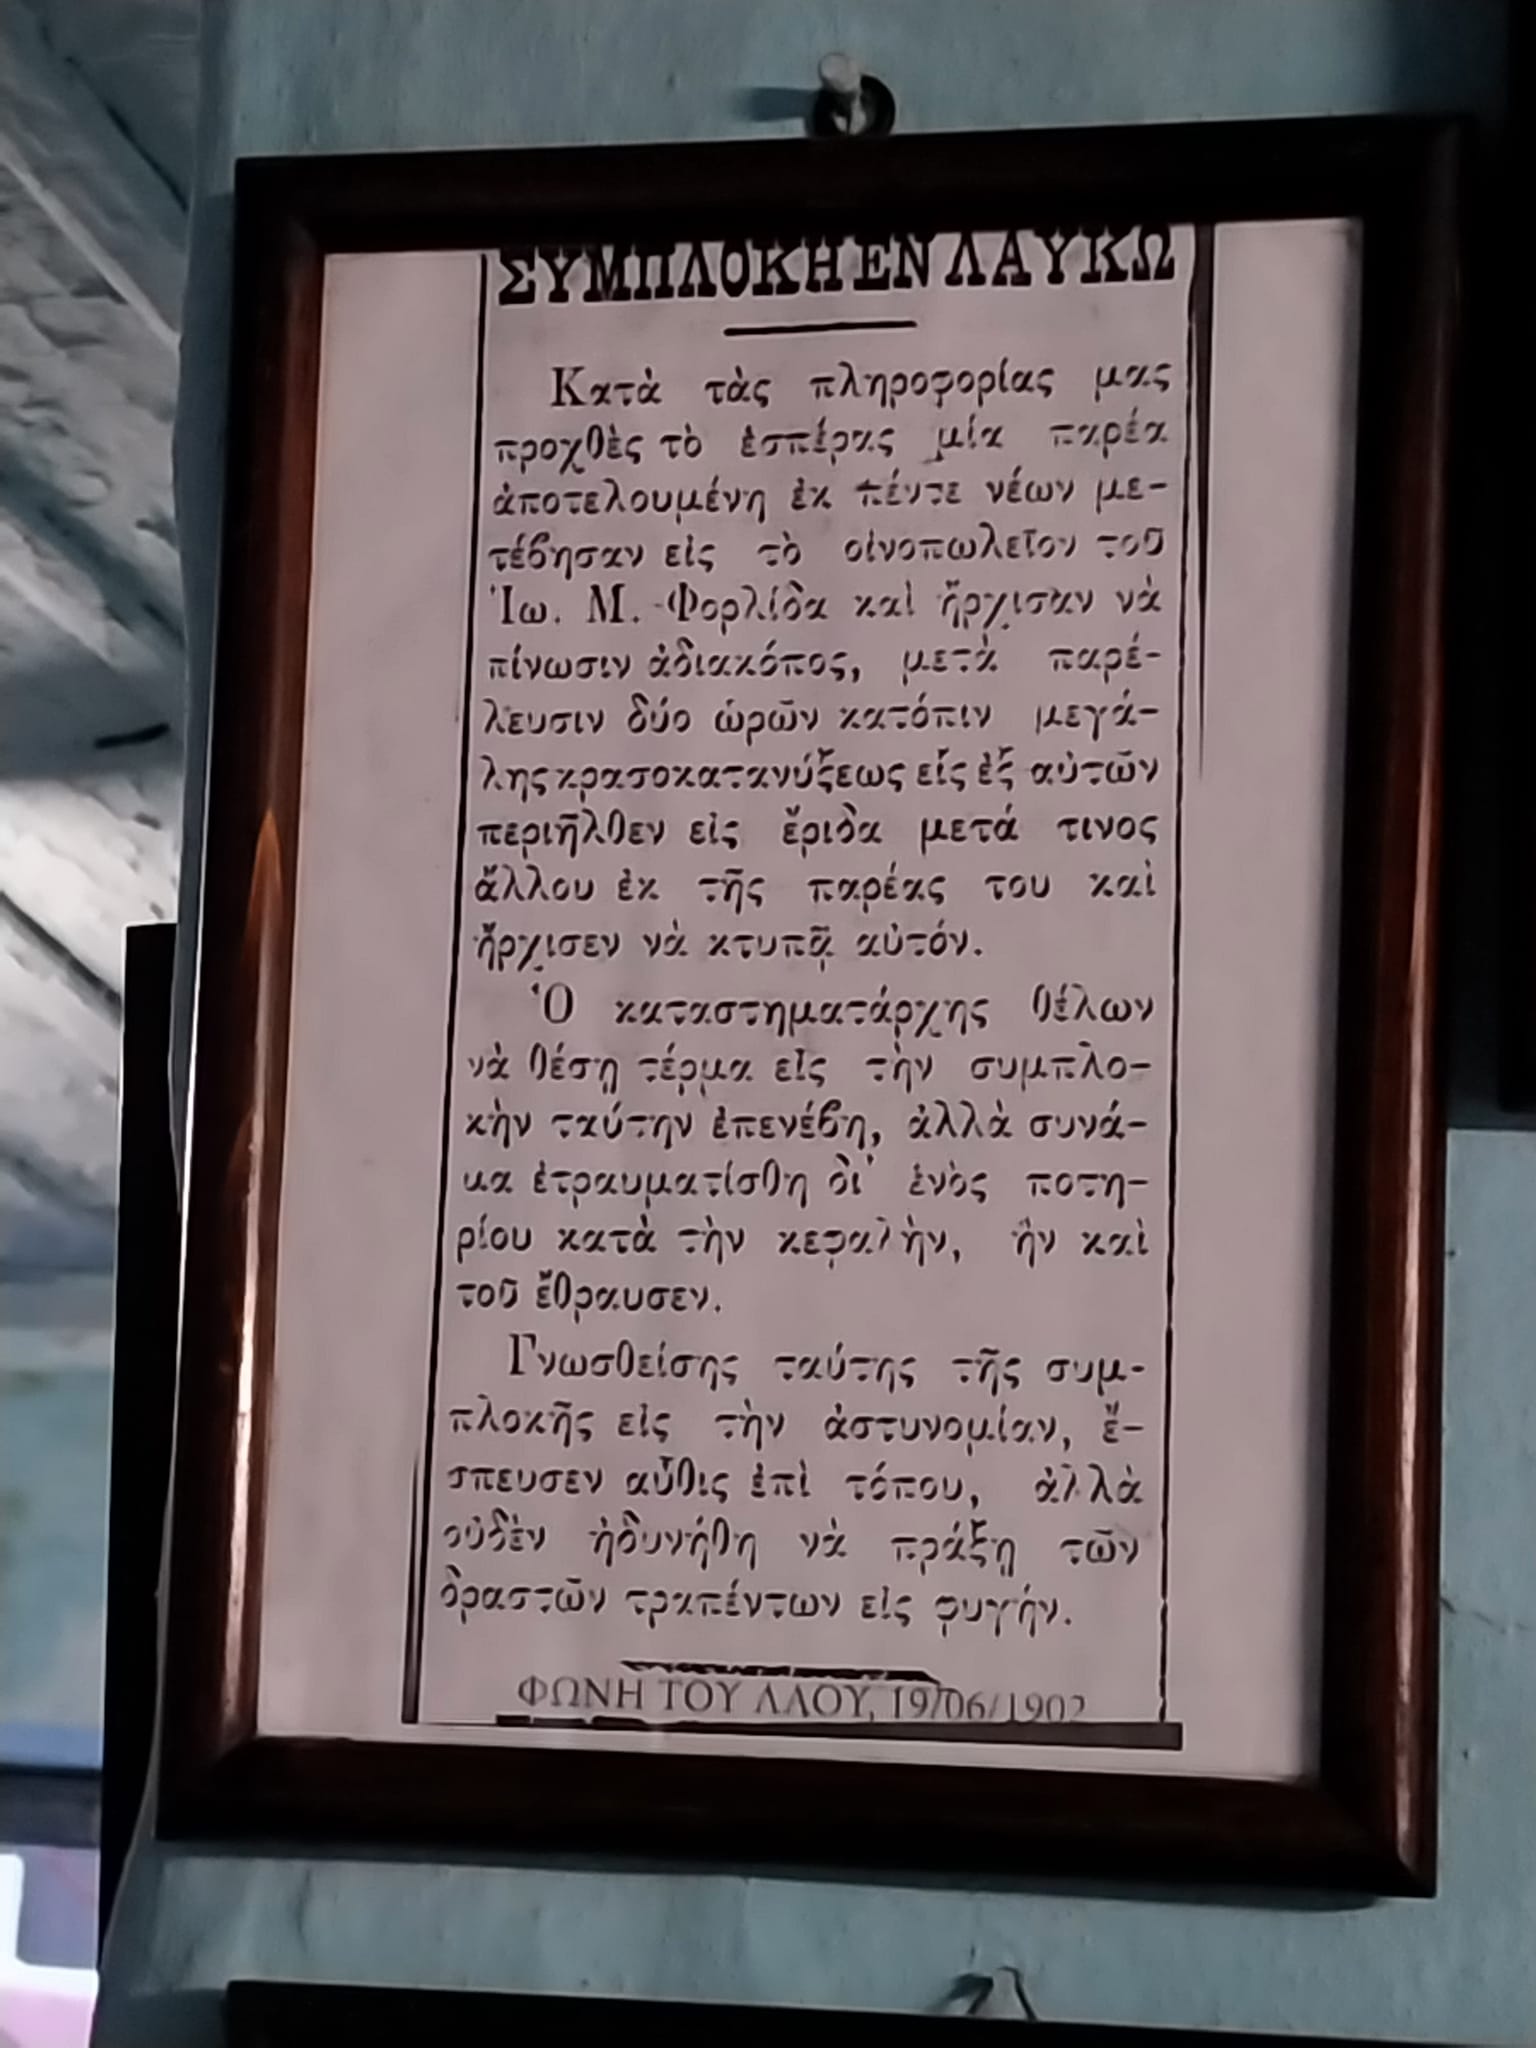 ΣΥΜΠΛΟΚΗ ΕΝ ΛΑΥΚΩ
Κατὰ τὰς πληροφορίας μας
προχθὲς τὸ ἑσπέρας μία παρέα
ἀποτελουμένη ἐκ πέντε νέων με-
τέβησαν εἰς τὸ οἰνοπωλεῖον τοῦ
Ἰω. Μ. Φορλίδα καὶ ἤρχισαν νὰ
πίνωσιν ἀδιακόπος, μετὰ παρέ-
λευσιν δύο ὡρῶν κατόπιν μεγά-
λης κρασοκατανύξεως εἷς ἐξ αὐτῶν
περιῆλθεν εἰς ἔριδα μετά τινος
ἄλλου ἐκ τῆς παρέας του καὶ
ἤρχισεν νὰ κτυπᾷ αὐτόν.
Ὁ καταστηματάρχης θέλων
νὰ θέσῃ τέρμα εἰς τὴν συμπλο-
κὴν ταύτην ἐπενέβη, ἀλλὰ συνά-
μα ἐτραυματίσθη δι' ἑνὸς ποτη-
ρίου κατὰ τὴν κεφαλὴν, ἣν καὶ
τοῦ ἔθραυσεν.
Γνωσθείσης ταύτης τῆς συμ-
πλοκῆς εἰς τὴν ἀστυνομίαν, ἔ-
σπευσεν αὖθις ἐπὶ τόπου, ἀλλὰ
οὐδὲν ἠδυνήθη νὰ πράξῃ τῶν
δραστῶν τραπέντων εἰς φυγήν.
ΦΩΝΗ ΤΟΥ ΛΑΟΥ, 19/06/1902